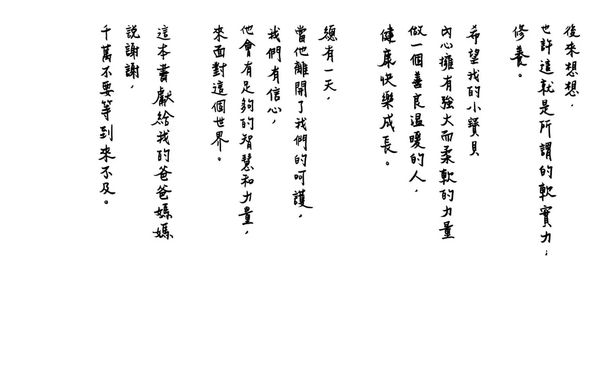 後來想想，
也許這就是所謂的軟實力：
修養。
希望我的小寶貝
內心擁有強大而柔軟的力量
做一個善良溫暖的人，
健康快樂成長。
總有一天，
當他離開了我們的呵護，
我們有信心，
他會有足夠的智慧和力量，
來面對這個世界。
這本書獻給我的爸爸媽媽
說謝謝，
千萬不要等到來不及。